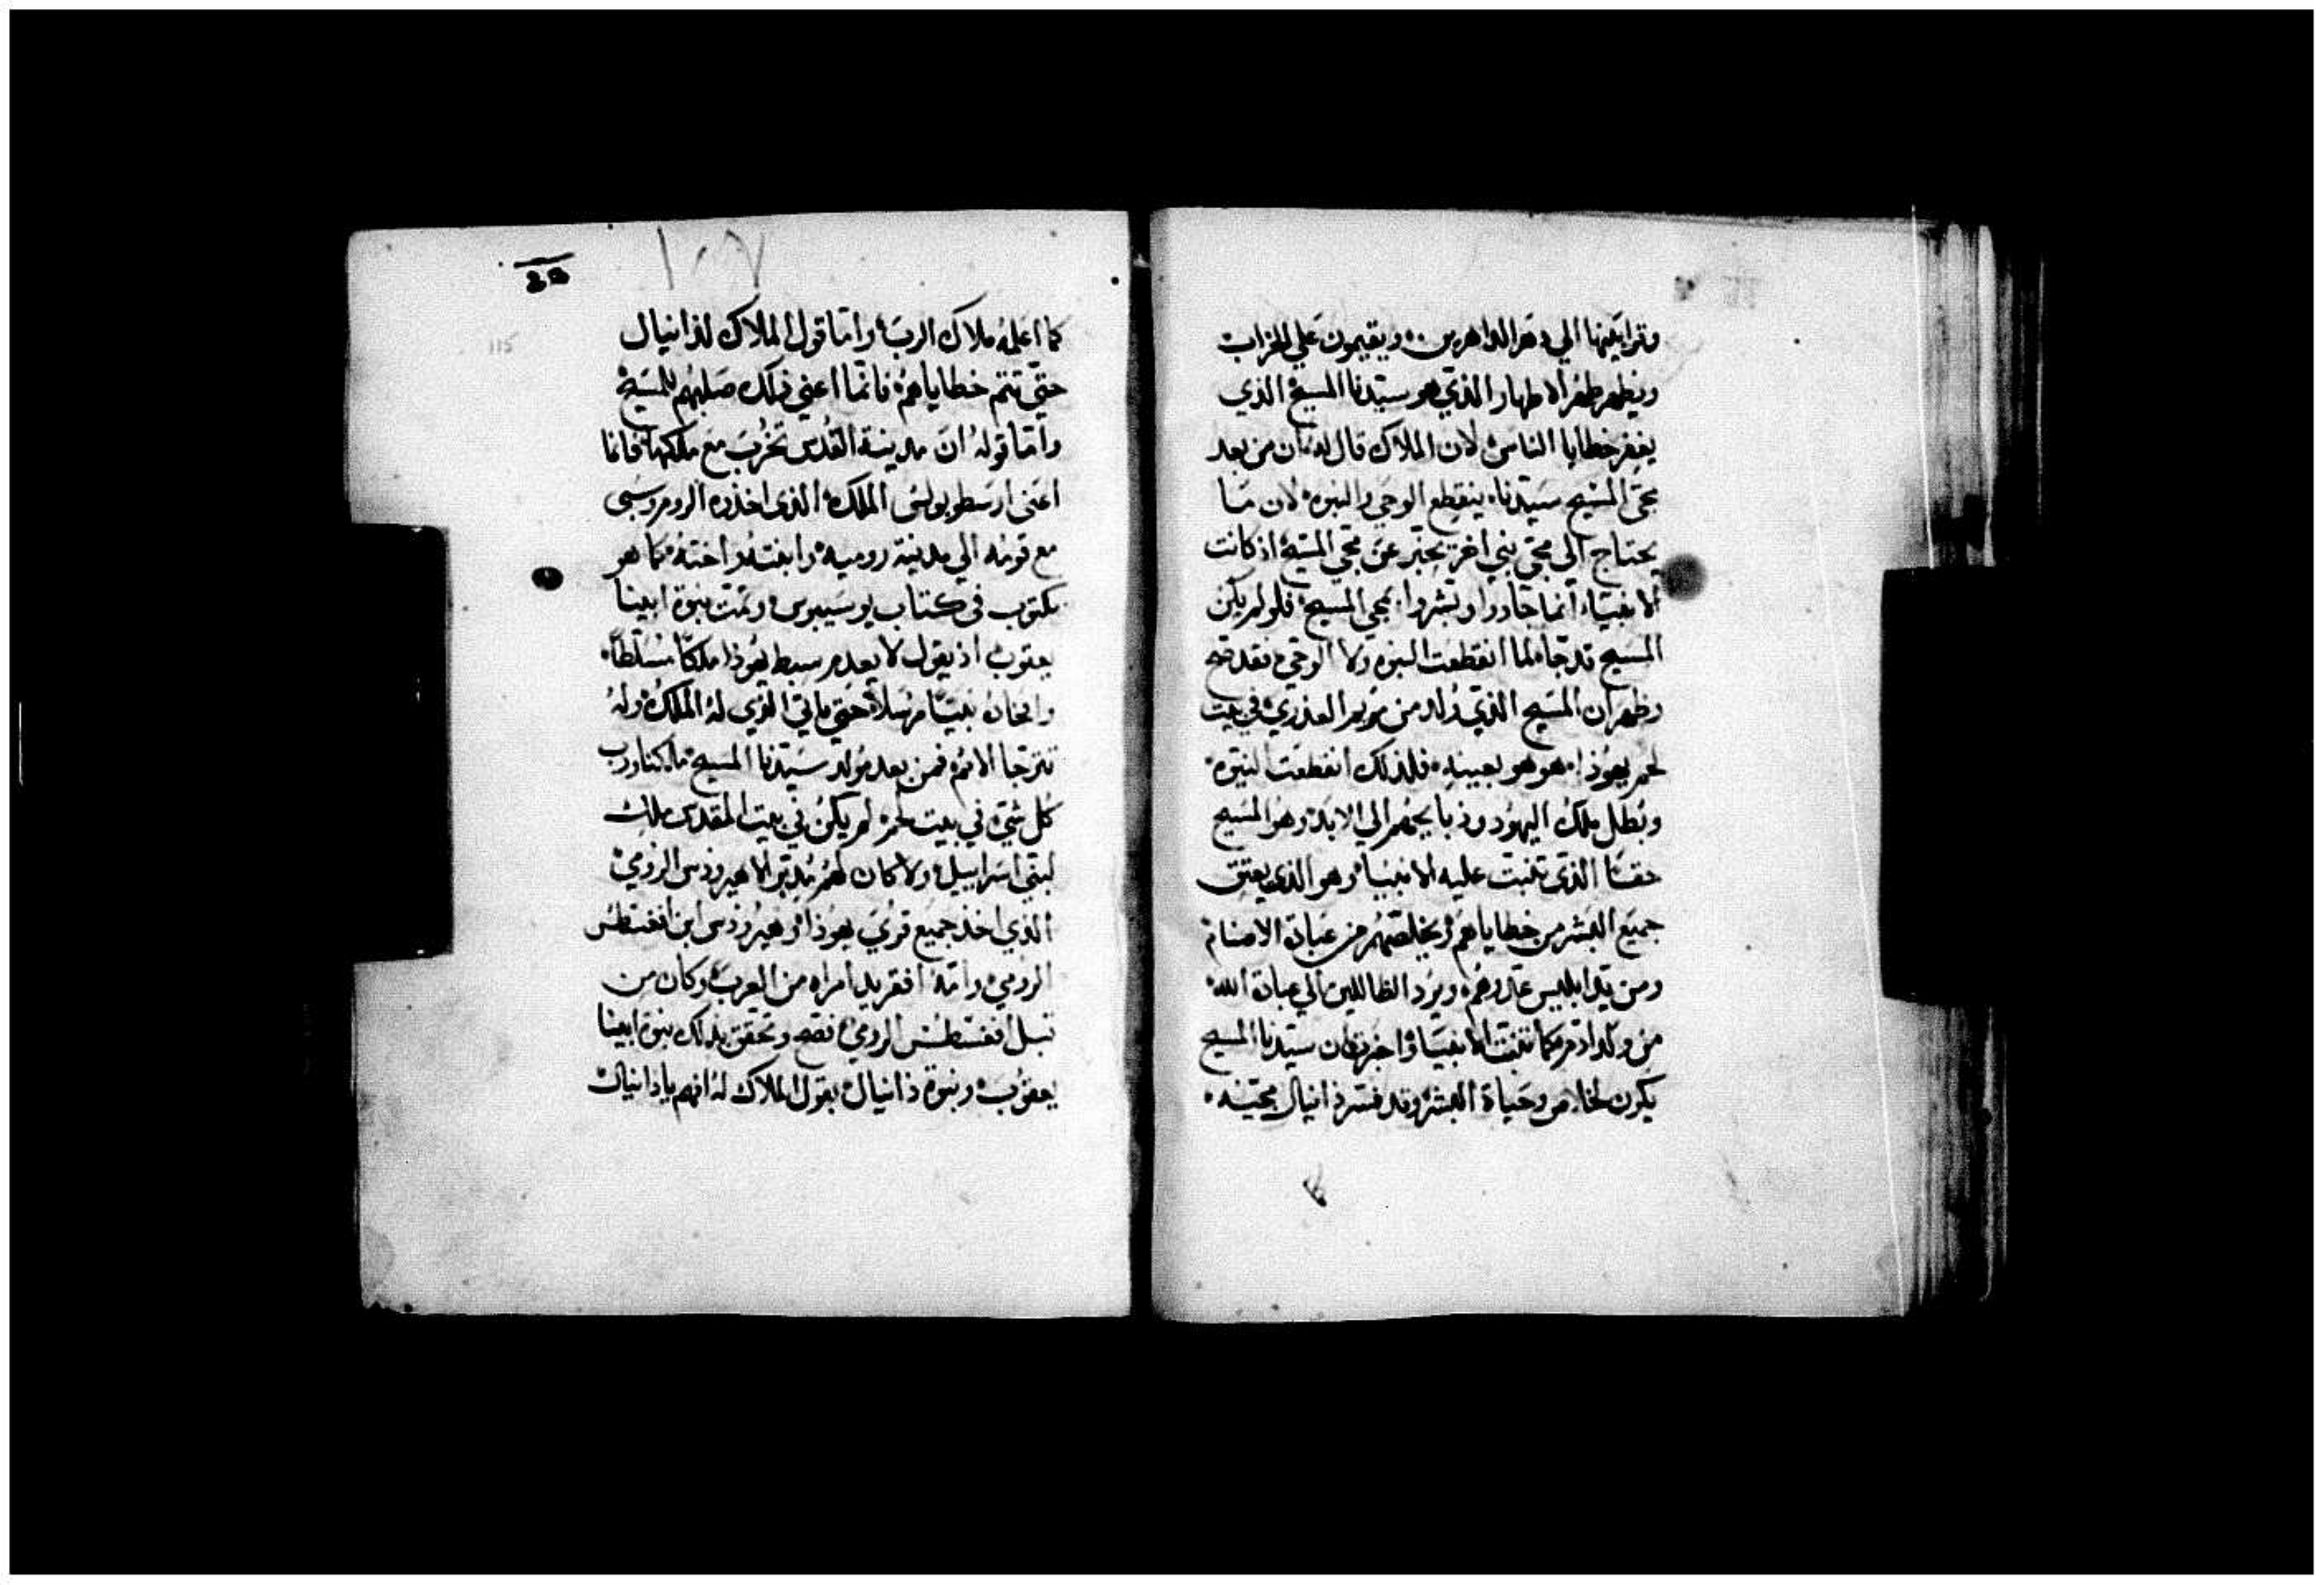 وقرابينها الي دهر الداهرين ؞ ويقيمون علي الخراب
ويظهر طهر الاطهار الذي هو سيدنا المسيح الذي
يغفر خطايا الناس لان الملاك قال له ان من بعد
مجي المسيح سيدنا ينقطع الوحي والنبوه لان ما
يحتاج الي مجي نبي اخر يخبر عن مجي المسيح اذ كانت
الانبياء انما جاووا وبشروا بمجي المسيح فلو لم يكن
المسيح قد جاء لما انقطعت النبوه ولا الوحي فقد صح
وظهر ان المسيح الذي ولد من مريم العذري في بيت
لحم يهوذا هو هو بعينه فلذلك انقطعت النبوه
وبطل ملك اليهود وذبايحهم الي الابد وهو المسيح
حقا الذي تنبت عليه الانبيا وهو الذي يعتق
جميع البشر من خطاياهم ويخلصهم من عبادة الاصنام
ومن يد ابليس عدوهم ويرد الظاللين الي عبادة الله
من ولد ادم كما تنبت الانبيا واخبرت ان سيدنا المسيح
يكون لخلاص وحياة البشر وقد فسر دانيال مجيه
١٠٧
115
كما اعلمه ملاك الرب واما قول الملاك لدانيال
حتي تتم خطاياهم فانما اعني ذلك صلبهم للمسيح
واما قوله ان مدينة القدس تخرب مع ملكها فانما
اعني ارسطوبولس الملك الذي اخذوه الروم وسبي
مع قومه الي مدينة روميه وابنته واخته كما هو
مكتوب في كتاب يوسيبوس وتمت نبوة ابينا
يعقوب اذ يقول لا يعدم سبط يهوذا ملكا مسلطا
وانخاذه نبيا مرسلا حتي ياتي الذي له الملك وله
تترجا الامم فمن بعد مولد سيدنا المسيح مالكنا ورب
كل شي في بيت لحم لم يكن في بيت المقدس ملك
لبني اسراييل ولا كان لهم مدبر الا هيرودس الرومي
الذي اخذ جميع قري يهوذا وهيرودس ابن انغسطس
الرومي وامه افقريد امراه من العرب وكان من
قبل اغسطس الرومي فصح وتحقق بذلك نبوة ابينا
يعقوب ونبوة دانيال بقول الملاك له افهم يا دانيال